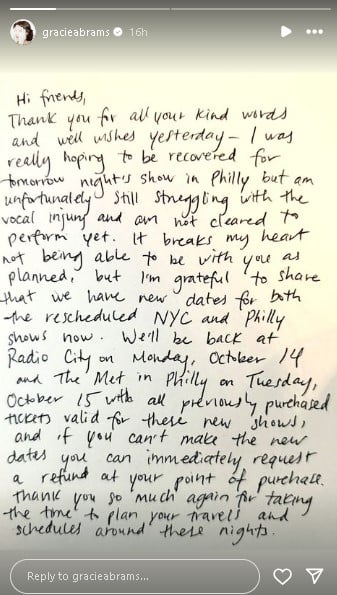 gracieabrams 16h
Hi friends,
Thank you for all your kind words
and well wishes yesterday – I was
really hoping to be recovered for
tomorrow night's show in Philly but am
unfortunately still struggling with the
vocal injury and am not cleared to
perform yet. It breaks my heart
not being able to be with you as
planned, but I'm grateful to share
that we have new dates for both
the rescheduled NYC and Philly
shows now. We'll be back at
Radio City on Monday, October 14
and The Met in Philly on Tuesday,
October 15 with all previously purchased
tickets valid for these new shows,
and if you can't make the new
dates you can immediately request
a refund at your point of purchase.
Thank you so much again for taking
the time to plan your travels and
schedules around these nights.
Reply to gracieabrams...